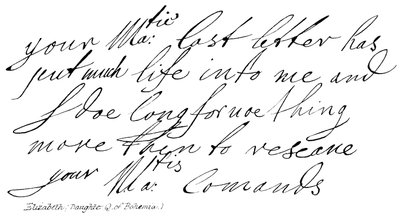 your Ma:tie last letter has
put much life into me and
I doe long for noe thing
more then to resceave
your Ma:tis Comands
Elizabeth, Daughter Q. of Bohemia.)